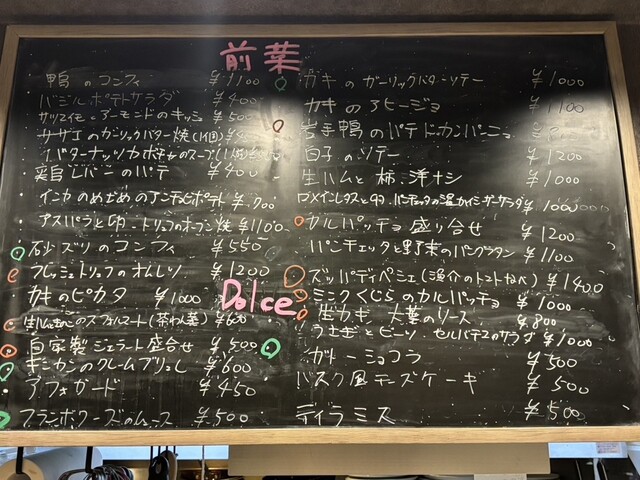 前菜
鴨のコンフィ ¥1100
バジルポテトサラダ ¥400
サツマイモとアーモンドのキッシュ ¥500
サザエのガーリックバター焼
バターナッツカボチャのスープ
鶏白レバーのパテ ¥400
インカのめざめのアンチョビポテト ¥700
アスパラと卵、トリュフのオーブン焼 ¥1100
砂ズリのコンフィ ¥550
フレッシュトリュフのオムレツ ¥1200
カキのピカタ ¥1000
生ハムときのこのスフォルマート(茶わん蒸) ¥600
カキのガーリックバターソテー ¥1000
カキのアヒージョ ¥1100
岩手鴨のパテドカンパーニュ
白子のソテー ¥1200
生ハムと柿、洋ナシ ¥1000
ロメインレタスと パンチェッタの温かいシーザーサラダ
カルパッチョ盛り合せ ¥1200
パンチェッタと野菜のパングラタン ¥1100
ズッパディペシェ(漁介のトマトなべ) ¥1400
ミンクくじらのカルパッチョ ¥1000
生カキ 大葉のソース ¥800
うさぎとビーツ、セルバチコのサラダ ¥1000
Dolce
自家製ジェラート盛合せ ¥500
キンカンのクレームブリュレ ¥600
アフォガード ¥450
フランボワーズのムース ¥500
ガトーショコラ ¥500
バスク風チーズケーキ ¥500
ティラミス ¥500